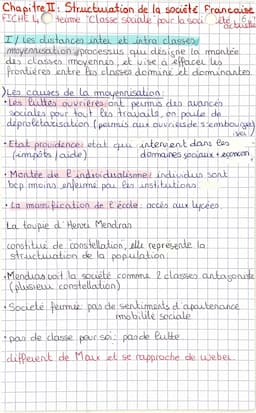 Chapitre II : Structuration de la société Française
FICHE 4 terme "Classe sociale" pour la soci
I / Les distances inter et intra classes
moyennisation : processus qui désigne la montée
des classes moyennes et vise à effacer les
frontières entre les classes dominé et dominantes
) Les causes de la moyennisation :
• Les luttes ouvrières ont permis des avancés
sociales pour tout les travails, on parle de
déprolétarisation (permis aux ouvriers de s'embourgeoi
ser)
• Etat providence : etat qui intervient dans les
(impôts / aide) domaines sociaux + econom
• Montée de l'individualisme : individus sont
bcp moins enfermé par les institutions
• La massification de l'école : accès aux lycées
La toupie d'Henri Mendras
constitué de constellation, elle représente la
structuration de la population
• Mendras voit la société comme 2 classes antagoniste
(plusieur constellation)
• Societé fermée pas de sentiments d'apartenance
mobilité sociale
• pas de classe pour soi : pas de lutte
différent de Marx et se rapproche de weber